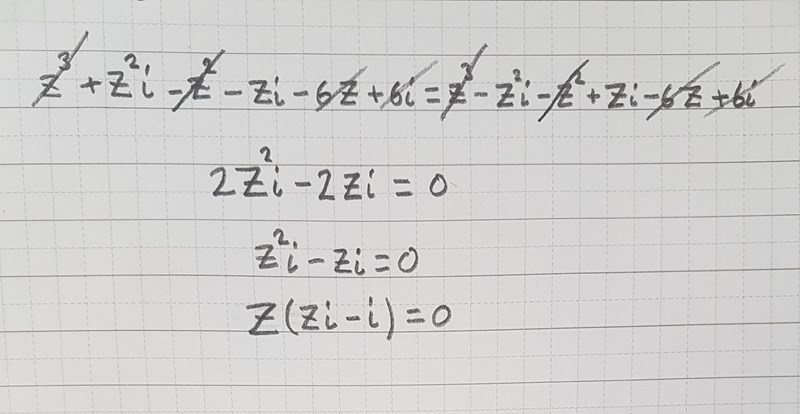 z³ + z²i - z² - zi - 6z + 6i = z³ - z²i - z² + zi - 6z + 6i
2z²i - 2zi = 0
z²i - zi = 0
z(zi - i) = 0